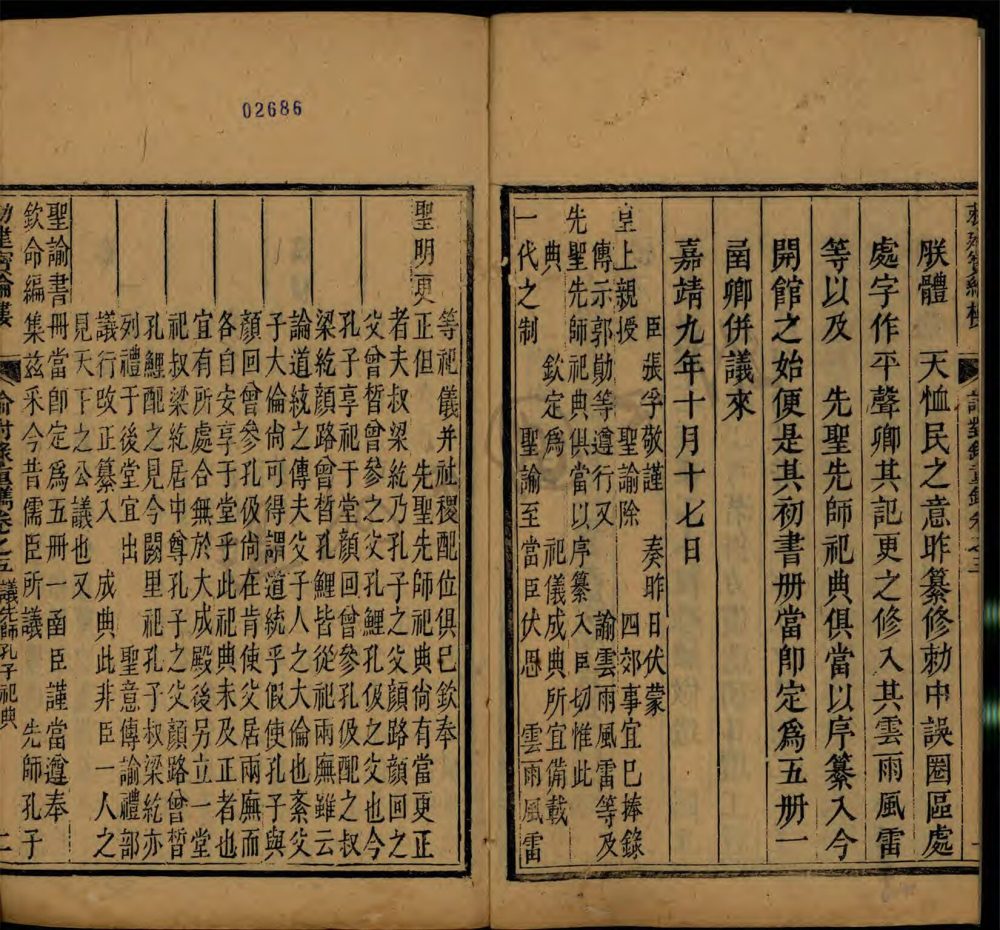 朕體　天恤民之意昨纂修勅中誤圈區處
處字作平聲卿其記更之修入其雲雨風雷
等以及　先聖先師祀典俱當以序纂入今
開館之始便是其初書册當即定為五册一
函卿併議來
嘉靖九年十月十七日
臣張孚敬謹　奏昨日伏蒙
皇上親授　聖諭除　四郊事宜已捧錄
傳示郭勛等遵行又　諭雲雨風雷等及
先聖先師祀典俱當以序纂入臣切惟此
典　欽定爲　祀儀成典所宜備載
一代之制　聖諭至當臣伏思　雲雨風雷
等祀儀并社稷配位俱已欽奉
聖明更正但　先聖先師祀典尚有當更正
者夫叔梁紇乃孔子之父顏路顏回之
父曾晳曾參之父孔鯉孔伋之父也今
孔子享祀于堂顏回曾參孔伋配之叔
梁紇顏路曾晳孔鯉皆從祀兩廡雖云
論道統之傳夫父子人之大倫也紊父
子大倫尚可得謂道統乎假使孔子與
顏回曾參孔伋尚在肯使父居兩廡而
各自安享于堂乎此祀典未及正者也
宜有所處合無於大成殿後另立一堂
祀叔梁紇居中尊孔子之父顏路曾晳
孔鯉配之見今闕里祀孔子叔梁紇亦
列禮于後堂宜出　聖意傳諭禮部
議行改正纂入　成典此非臣一人之
見天下之公議也又
聖諭書冊當即定爲五冊一函臣謹當遵奉
欽命編集兹采今昔儒臣所議　先師孔子
諭對錄
議先師孔子祀典
二
02686